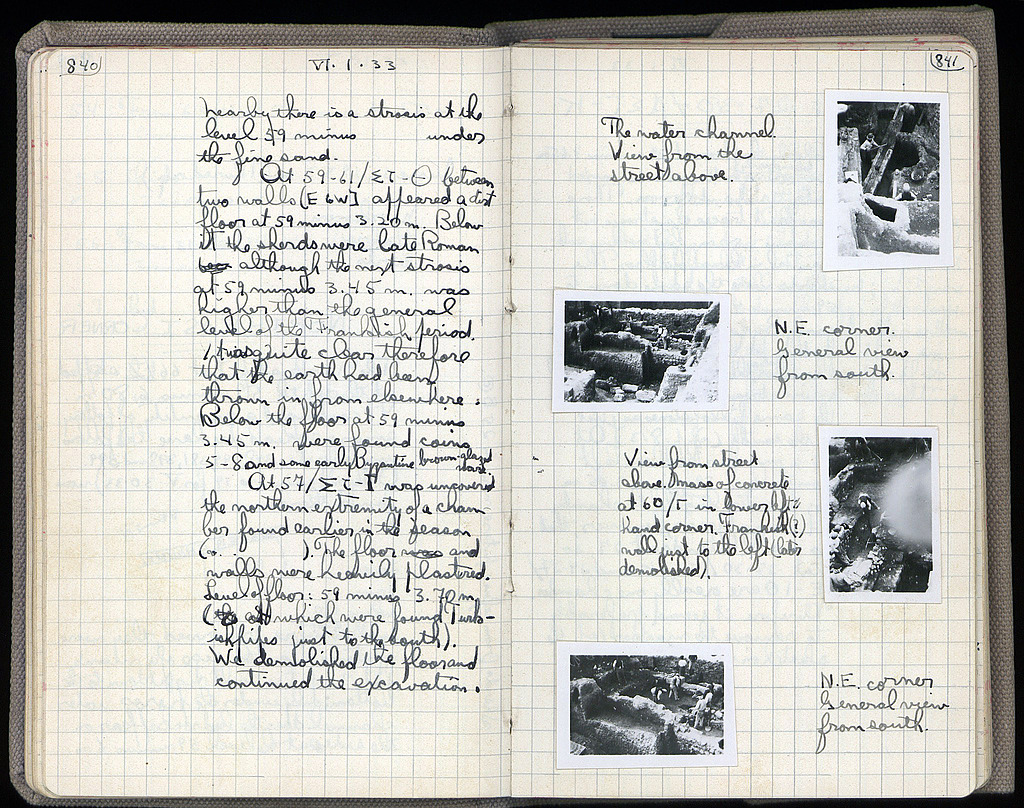 840
VI · 1 · 33
nearby there is a strosis at the
level 59 minus under
the fine sand.
At 59-61/ΣΤ-Θ between
two walls [E & W] appeared a dirt
floor at 59 minus 3.20 m. Below
it the sherds were late Roman
although the next strosis
at 59 minus 3.45 m. was
higher than the general
level of the Frankish period.
It was quite clear therefore
that the earth had been
thrown in from elsewhere.
Below the floor at 59 minus
3.45 m. were found coins
5-8 and some early Byzantine brown-glazed
ware.
At 57/ΣΤ-Γ was uncovered
the northern extremity of a cham-
ber found earlier in the season
( ). The floor and
walls were heavily plastered.
Level of floor: 59 minus 3.70 m.
( which were found Turk-
ish pipes just to the south).
We demolished the floor and
continued the excavation.
841
The water channel.
View from the
street above.
N.E. corner.
General view
from south.
View from street
above. Mass of concrete
at 60/Γ in lower left
hand corner. Frankish (?)
wall just to the left (later
demolished).
N.E. corner
General view
from south.